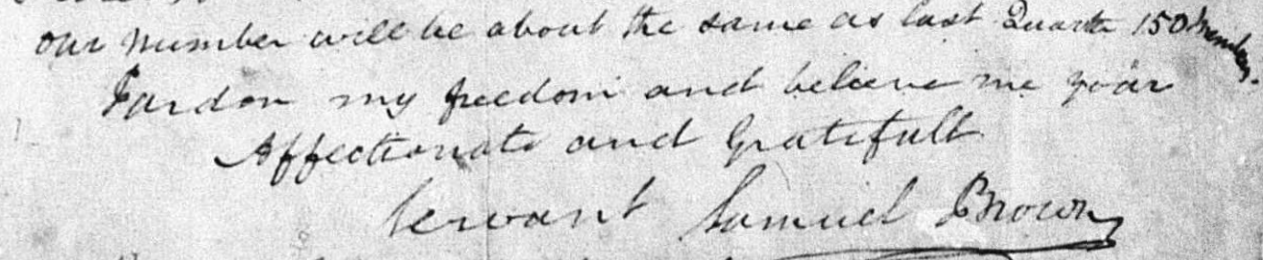 our number will be about the same as last Quarter 150 Members.
Pardon my freedom and believe me your
Affectionate and Gratefull
Servant Samuel Brown